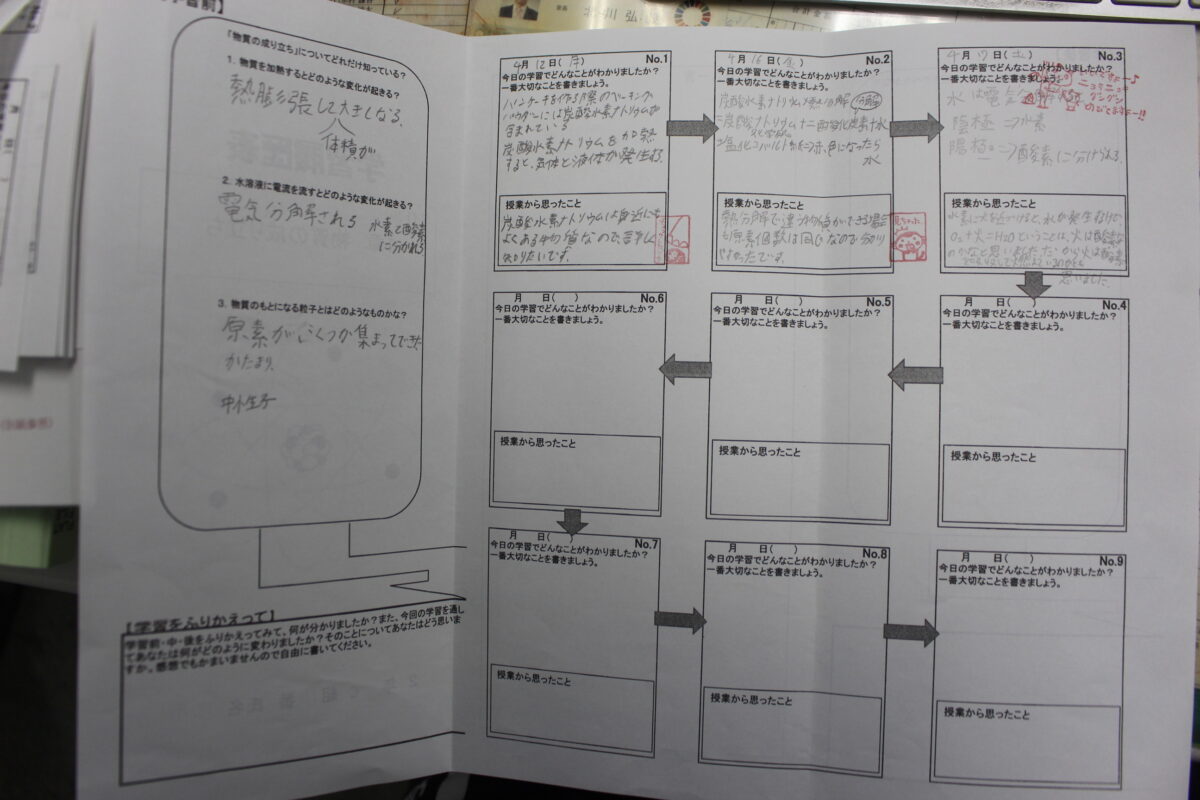 「物質の成り立ち」についてどれだけ知っている？
1. 物質を加熱するとどのような変化が起きる？
熱膨張して大きくなる.
体積が
2. 水溶液に電流を流すとどのような変化が起きる？
電気分解される 水素と酸素
に分かれる
3. 物質のもとになる粒子とはどのようなものかな？
原素がいくつか集まってできた
かたまり.
【学習をふりかえって】
学習前・中・後をふりかえってみて、何が分かりましたか？また、今回の学習を通し
てあなたは何がどのように変わりましたか？そのことについてあなたはどう思いま
すか。感想でもかまいませんので自由に書いてください。
4月12日(月) No.1
今日の学習でどんなことがわかりましたか？
一番大切なことを書きましょう。
パンケーキを作る際のベーキング
パウダーには炭酸水素ナトリウムが
含まれている
炭酸水素ナトリウムを加熱
すると、気体と液体が発生する.
授業から思ったこと
炭酸水素ナトリウムは身近にも
よくある物質なので詳しく
知りたいです.
4月16日(金) No.2
今日の学習でどんなことがわかりましたか？
一番大切なことを書きましょう。
炭酸水素ナトリウム 熱分解
炭酸ナトリウム+二酸化炭素+水
塩化コバルト 赤色になったら
水
授業から思ったこと
熱分解で違う物質ができる場合
も原素個数は同じなので分かり
やすかったです.
見ちゃった
4月17日(土) No.3
今日の学習でどんなことがわかりましたか？
一番大切なことを書きましょう。
水は電気分解
陰極⇒水素
陽極⇒酸素に分けられる.
授業から思ったこと
水素に火を近づけると、水が発生するので
思いました.
月 日( ) No.4
今日の学習でどんなことがわかりましたか？
一番大切なことを書きましょう。
授業から思ったこと
月 日( ) No.5
今日の学習でどんなことがわかりましたか？
一番大切なことを書きましょう。
授業から思ったこと
月 日( ) No.6
今日の学習でどんなことがわかりましたか？
一番大切なことを書きましょう。
授業から思ったこと
月 日( ) No.7
今日の学習でどんなことがわかりましたか？
一番大切なことを書きましょう。
授業から思ったこと
月 日( ) No.8
今日の学習でどんなことがわかりましたか？
一番大切なことを書きましょう。
授業から思ったこと
月 日( ) No.9
今日の学習でどんなことがわかりましたか？
一番大切なことを書きましょう。
授業から思ったこと